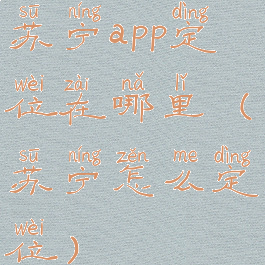 sū níng dìng
苏宁app定
wèi zài nǎ lǐ
位在哪里（
sū níng zěn me dìng
苏宁怎么定
wèi
位）